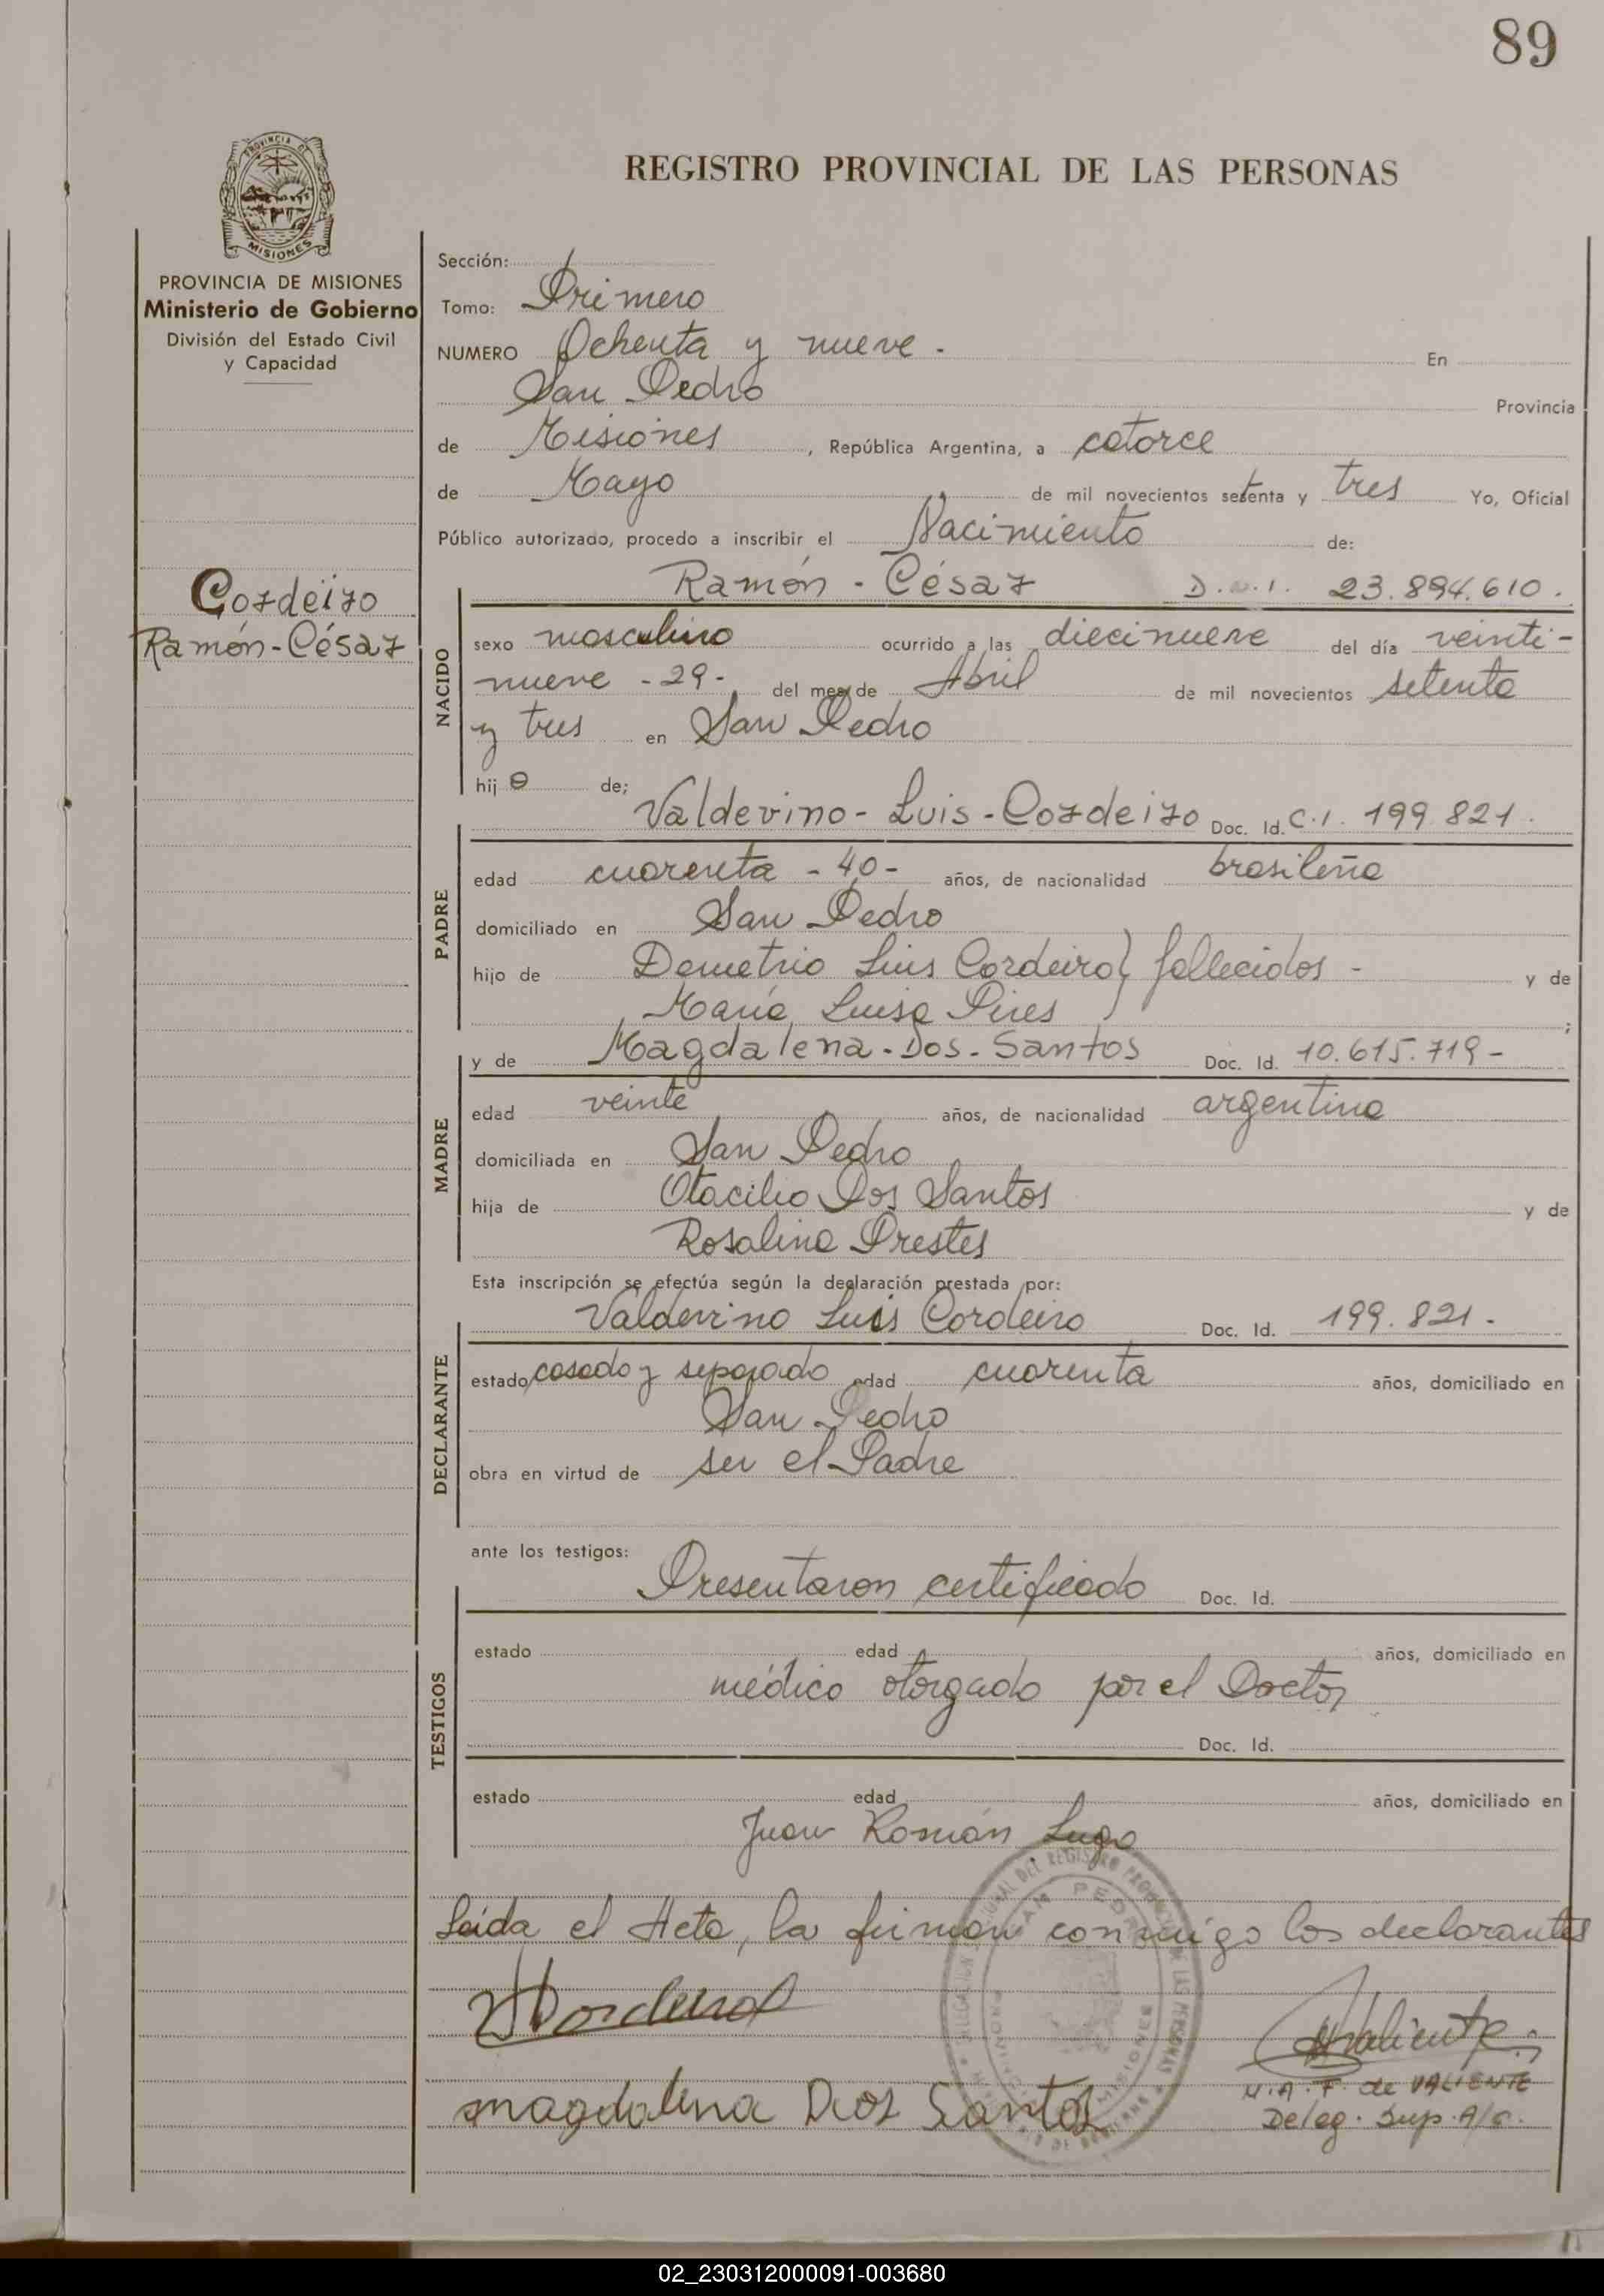 89
PROVINCIA DE
MISIONES
REGISTRO PROVINCIAL DE LAS PERSONAS
PROVINCIA DE MISIONES
Ministerio de Gobierno
División del Estado Civil
y Capacidad
Cordeiro
Ramón-César
Sección:
Tomo: Primero
NUMERO Ochenta y nueve - En
San Pedro Provincia
de Misiones, República Argentina, a catorce
de Mayo de mil novecientos setenta y tres Yo, Oficial
Público autorizado, procedo a inscribir el Nacimiento de:
Ramón - César D.N.I. 23.894.610.
NACIDO
sexo masculino ocurrido a las diecinueve del día veinti-
nueve - 29 - del mes de Abril de mil novecientos setenta
y tres en San Pedro
hij o de;
Valdevino - Luis - Cordeiro Doc. Id. C.I. 199.821.
PADRE
edad cuarenta - 40 - años, de nacionalidad brasileña
domiciliado en San Pedro
hijo de Demetrio Luis Cordeiro } fallecidos - y de
María Luisa Pires ;
y de Magdalena - Dos - Santos Doc. Id. 10.615.719 -
MADRE
edad veinte años, de nacionalidad argentina
domiciliada en San Pedro
hija de Otacilio Dos Santos y de
Rosalina Prestes
Esta inscripción se efectúa según la declaración prestada por:
Valdevino Luis Cordeiro Doc. Id. 199.821 -
DECLARANTE
estado casado y separado edad cuarenta años, domiciliado en
San Pedro
obra en virtud de ser el Padre
ante los testigos:
Presentaron certificado Doc. Id.
TESTIGOS
estado edad años, domiciliado en
médico otorgado por el Doctor
Doc. Id.
estado edad años, domiciliado en
Juan Román Lugo
Leída el Acta, la firman conmigo los declarantes
magdalena Dos Santos
M.A.F. de VALIENTE
Deleg. Sup. A/c.
SAN PEDRO
MISIONES
02_230312000091-003680